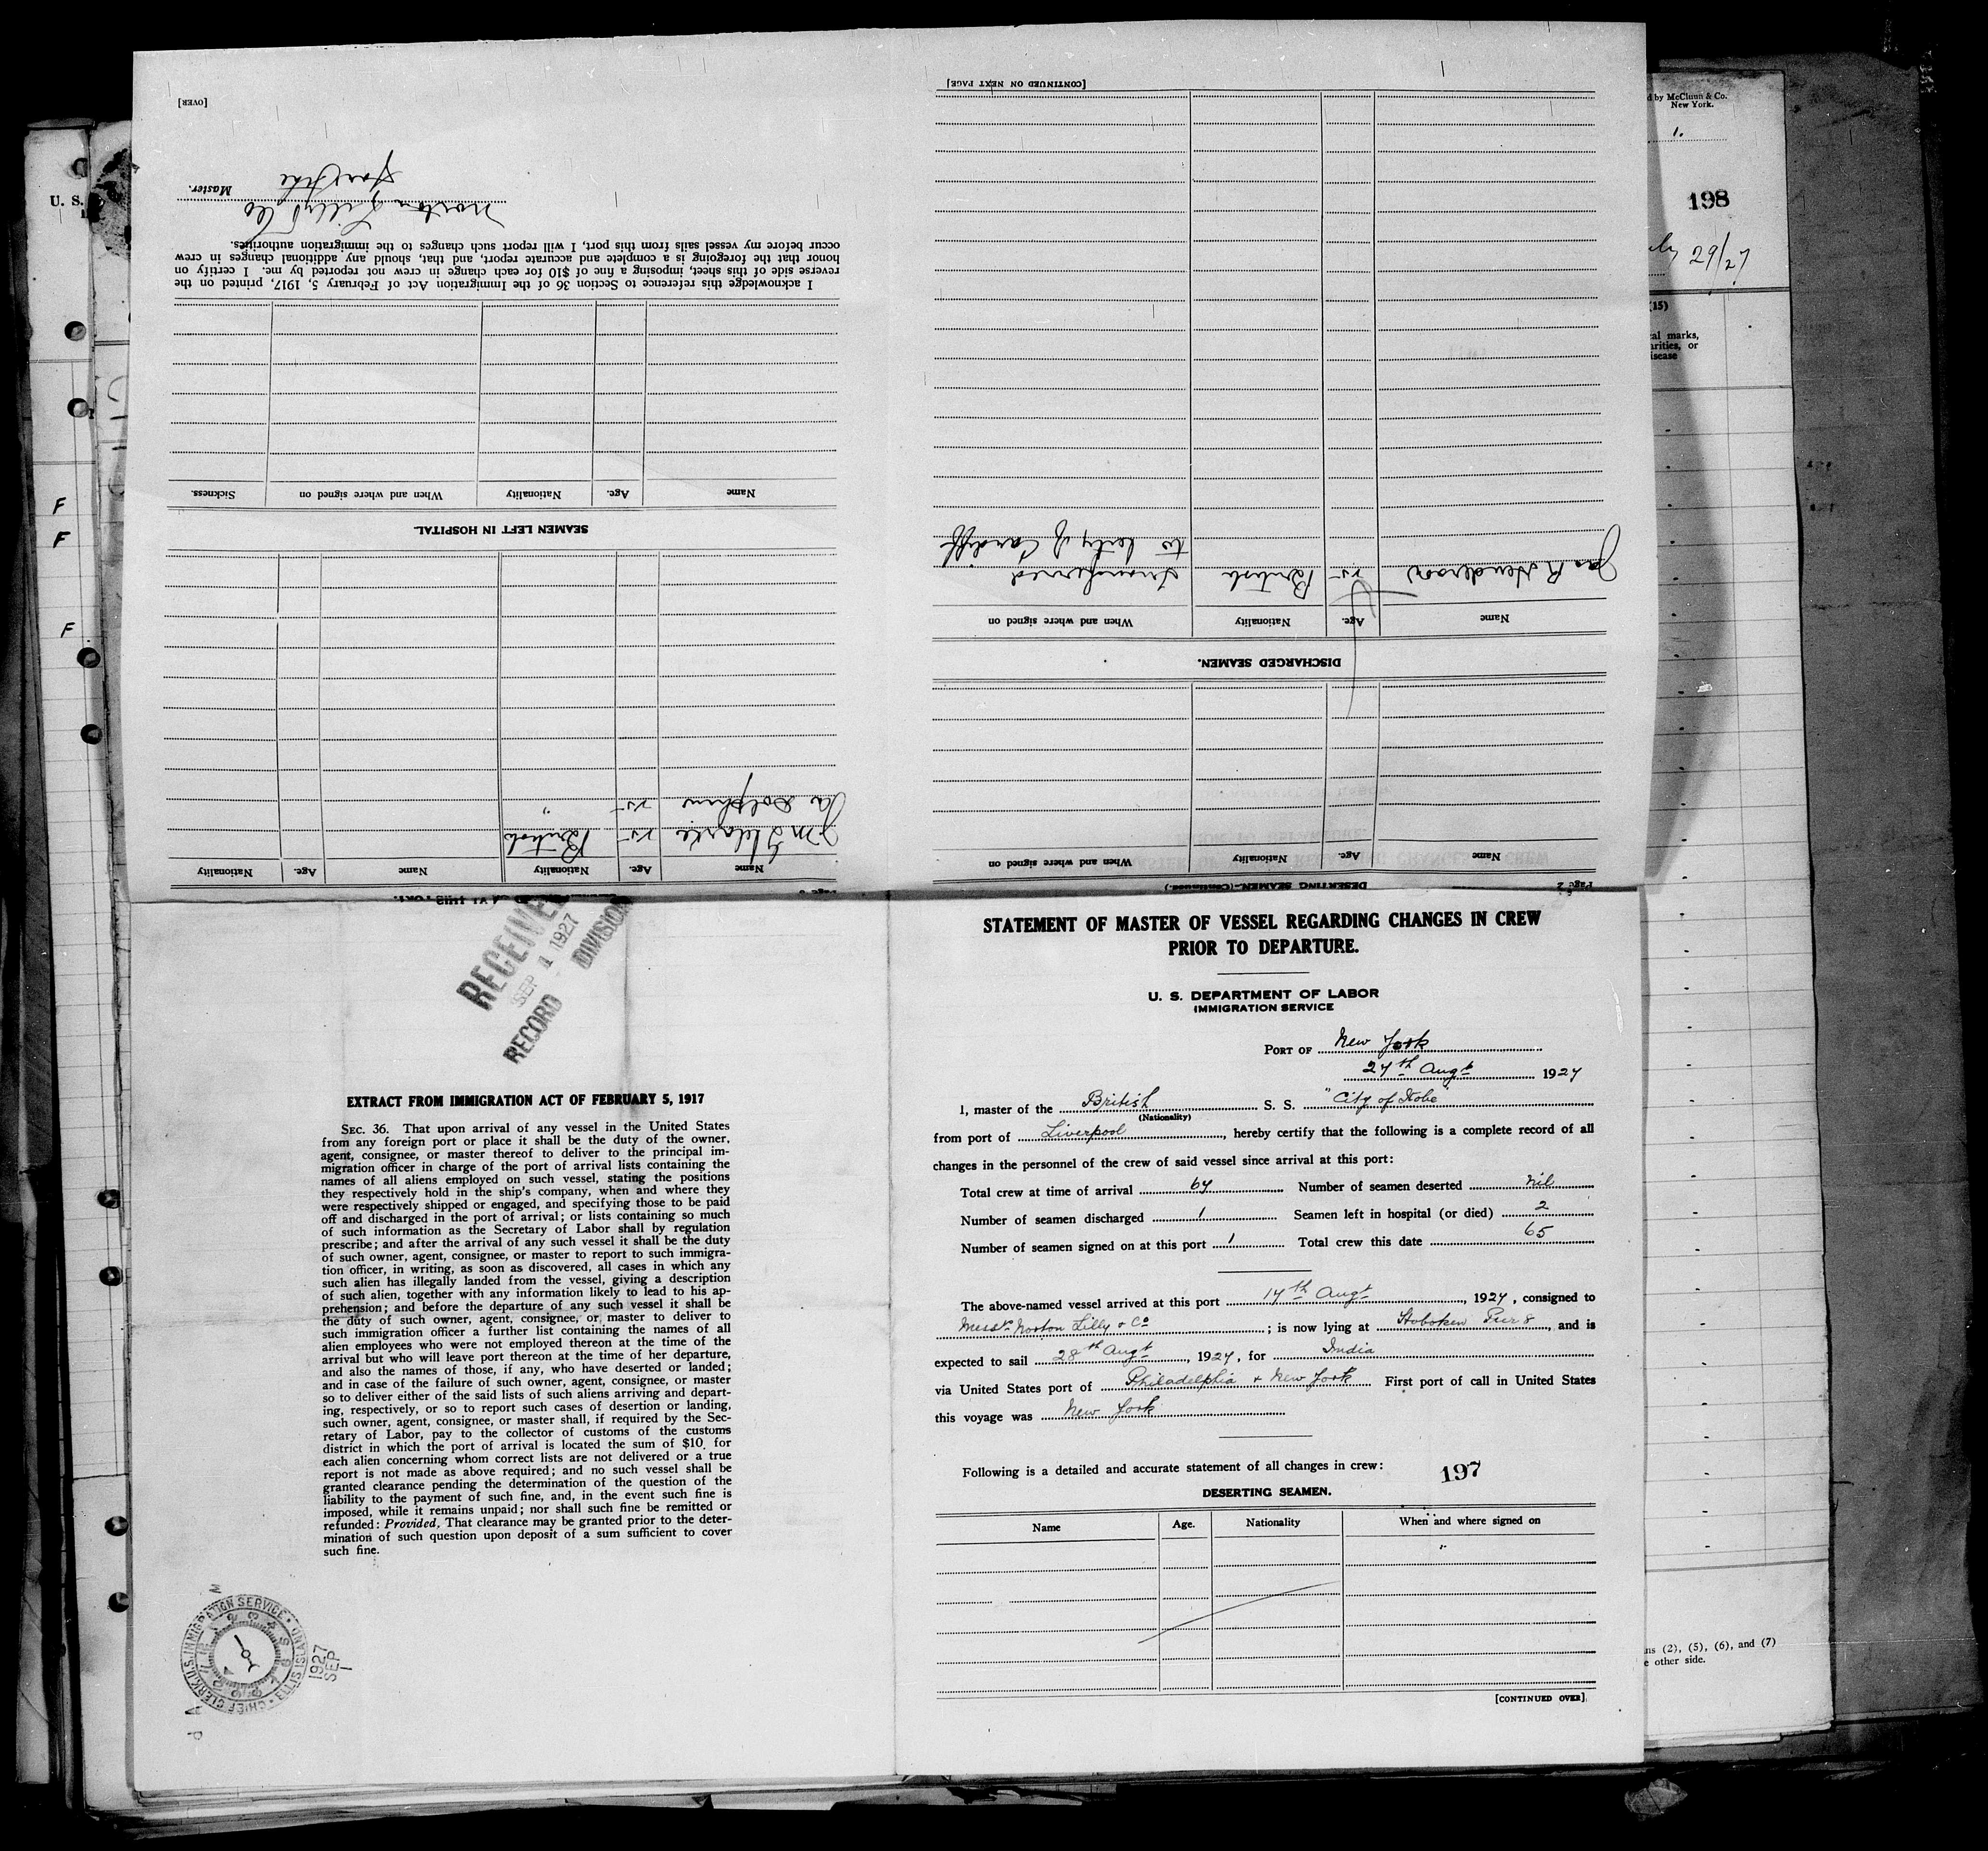 [OVER]
Master.
Norton Lilly & Co
I acknowledge this reference to Section 36 of the Immigration Act of February 5, 1917, printed on the
reverse side of this sheet, imposing a fine of $10 for each change in crew not reported by me. I certify on
honor that the foregoing is a complete and accurate report, and that, should any additional changes in crew
occur before my vessel sails from this port, I will report such changes to the immigration authorities.
SEAMEN LEFT IN HOSPITAL.
Name Age. Nationality When and where signed on Sickness.
Name Age. Nationality Name Age. Nationality
25 British
25 "
[CONTINUED ON NEXT PAGE]
DISCHARGED SEAMEN.
Name Age. Nationality When and where signed on
Jas R Henderson 25 British transferred
to City of Cardiff
Page 2
DESERTING SEAMEN.—(Continued.)
Name Age. Nationality When and where signed on
U. S.
F
F
F
d by McClunn & Co.
New York.
1.
198
29/27
(15)
al marks,
arities, or
isease
ns (2), (5), (6), and (7)
e other side.
RECEIVED
SEP 1 1927
RECORD DIVISION
EXTRACT FROM IMMIGRATION ACT OF FEBRUARY 5, 1917
SEC. 36. That upon arrival of any vessel in the United States
from any foreign port or place it shall be the duty of the owner,
agent, consignee, or master thereof to deliver to the principal im-
migration officer in charge of the port of arrival lists containing the
names of all aliens employed on such vessel, stating the positions
they respectively hold in the ship's company, when and where they
were respectively shipped or engaged, and specifying those to be paid
off and discharged in the port of arrival; or lists containing so much
of such information as the Secretary of Labor shall by regulation
prescribe; and after the arrival of any such vessel it shall be the duty
of such owner, agent, consignee, or master to report to such immigra-
tion officer, in writing, as soon as discovered, all cases in which any
such alien has illegally landed from the vessel, giving a description
of such alien, together with any information likely to lead to his ap-
prehension; and before the departure of any such vessel it shall be
the duty of such owner, agent, consignee, or master to deliver to
such immigration officer a further list containing the names of all
alien employees who were not employed thereon at the time of the
arrival but who will leave port thereon at the time of her departure,
and also the names of those, if any, who have deserted or landed;
and in case of the failure of such owner, agent, consignee, or master
so to deliver either of the said lists of such aliens arriving and depart-
ing, respectively, or so to report such cases of desertion or landing,
such owner, agent, consignee, or master shall, if required by the Sec-
retary of Labor, pay to the collector of customs of the customs
district in which the port of arrival is located the sum of $10 for
each alien concerning whom correct lists are not delivered or a true
report is not made as above required; and no such vessel shall be
granted clearance pending the determination of the question of the
liability to the payment of such fine, and, in the event such fine is
imposed, while it remains unpaid; nor shall such fine be remitted or
refunded: Provided, That clearance may be granted prior to the deter-
mination of such question upon deposit of a sum sufficient to cover
such fine.
CHIEF CLERK U.S. IMMIGRATION SERVICE · ELLIS ISLAND
1927
SEP
1
STATEMENT OF MASTER OF VESSEL REGARDING CHANGES IN CREW
PRIOR TO DEPARTURE.
U. S. DEPARTMENT OF LABOR
IMMIGRATION SERVICE
PORT OF New York
27th Augt 1927
I, master of the British S. S. "City of Kobe"
(Nationality)
from port of Liverpool, hereby certify that the following is a complete record of all
changes in the personnel of the crew of said vessel since arrival at this port:
Total crew at time of arrival 67 Number of seamen deserted Nil
Number of seamen discharged 1 Seamen left in hospital (or died) 2
Number of seamen signed on at this port 1 Total crew this date 65
The above-named vessel arrived at this port 17th Augt, 1927, consigned to
Messrs Norton Lilly & Co; is now lying at Hoboken Pier 8, and is
expected to sail 28th Augt, 1927, for India
via United States port of Philadelphia & New York First port of call in United States
this voyage was New York
Following is a detailed and accurate statement of all changes in crew:
197
DESERTING SEAMEN.
Name Age. Nationality When and where signed on
[CONTINUED OVER]